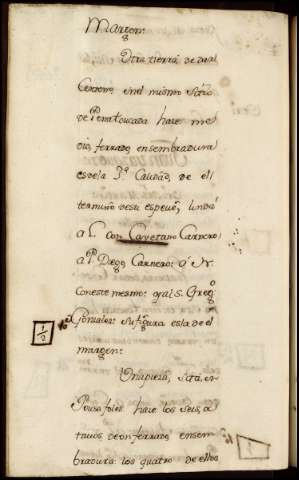 Margen:
Otra tierra de aral
Cerroens enel mismo sitio
de Penatoucada hace me
dio, ferrado, ensembradura
es de la 3ª Calidad, de el
termino desu especie, linda
a L. con Cayetano Carnero:
a P. Diego Carnero: a N.
con este mesmo: y al S. Greg.º
Gonzales: su figura es la de el
margen:
1/2
Una pieza, sita, en
Pousafoles hace los seis, a
tavos de un ferrado, ensem
bradura: los quatro de ellos